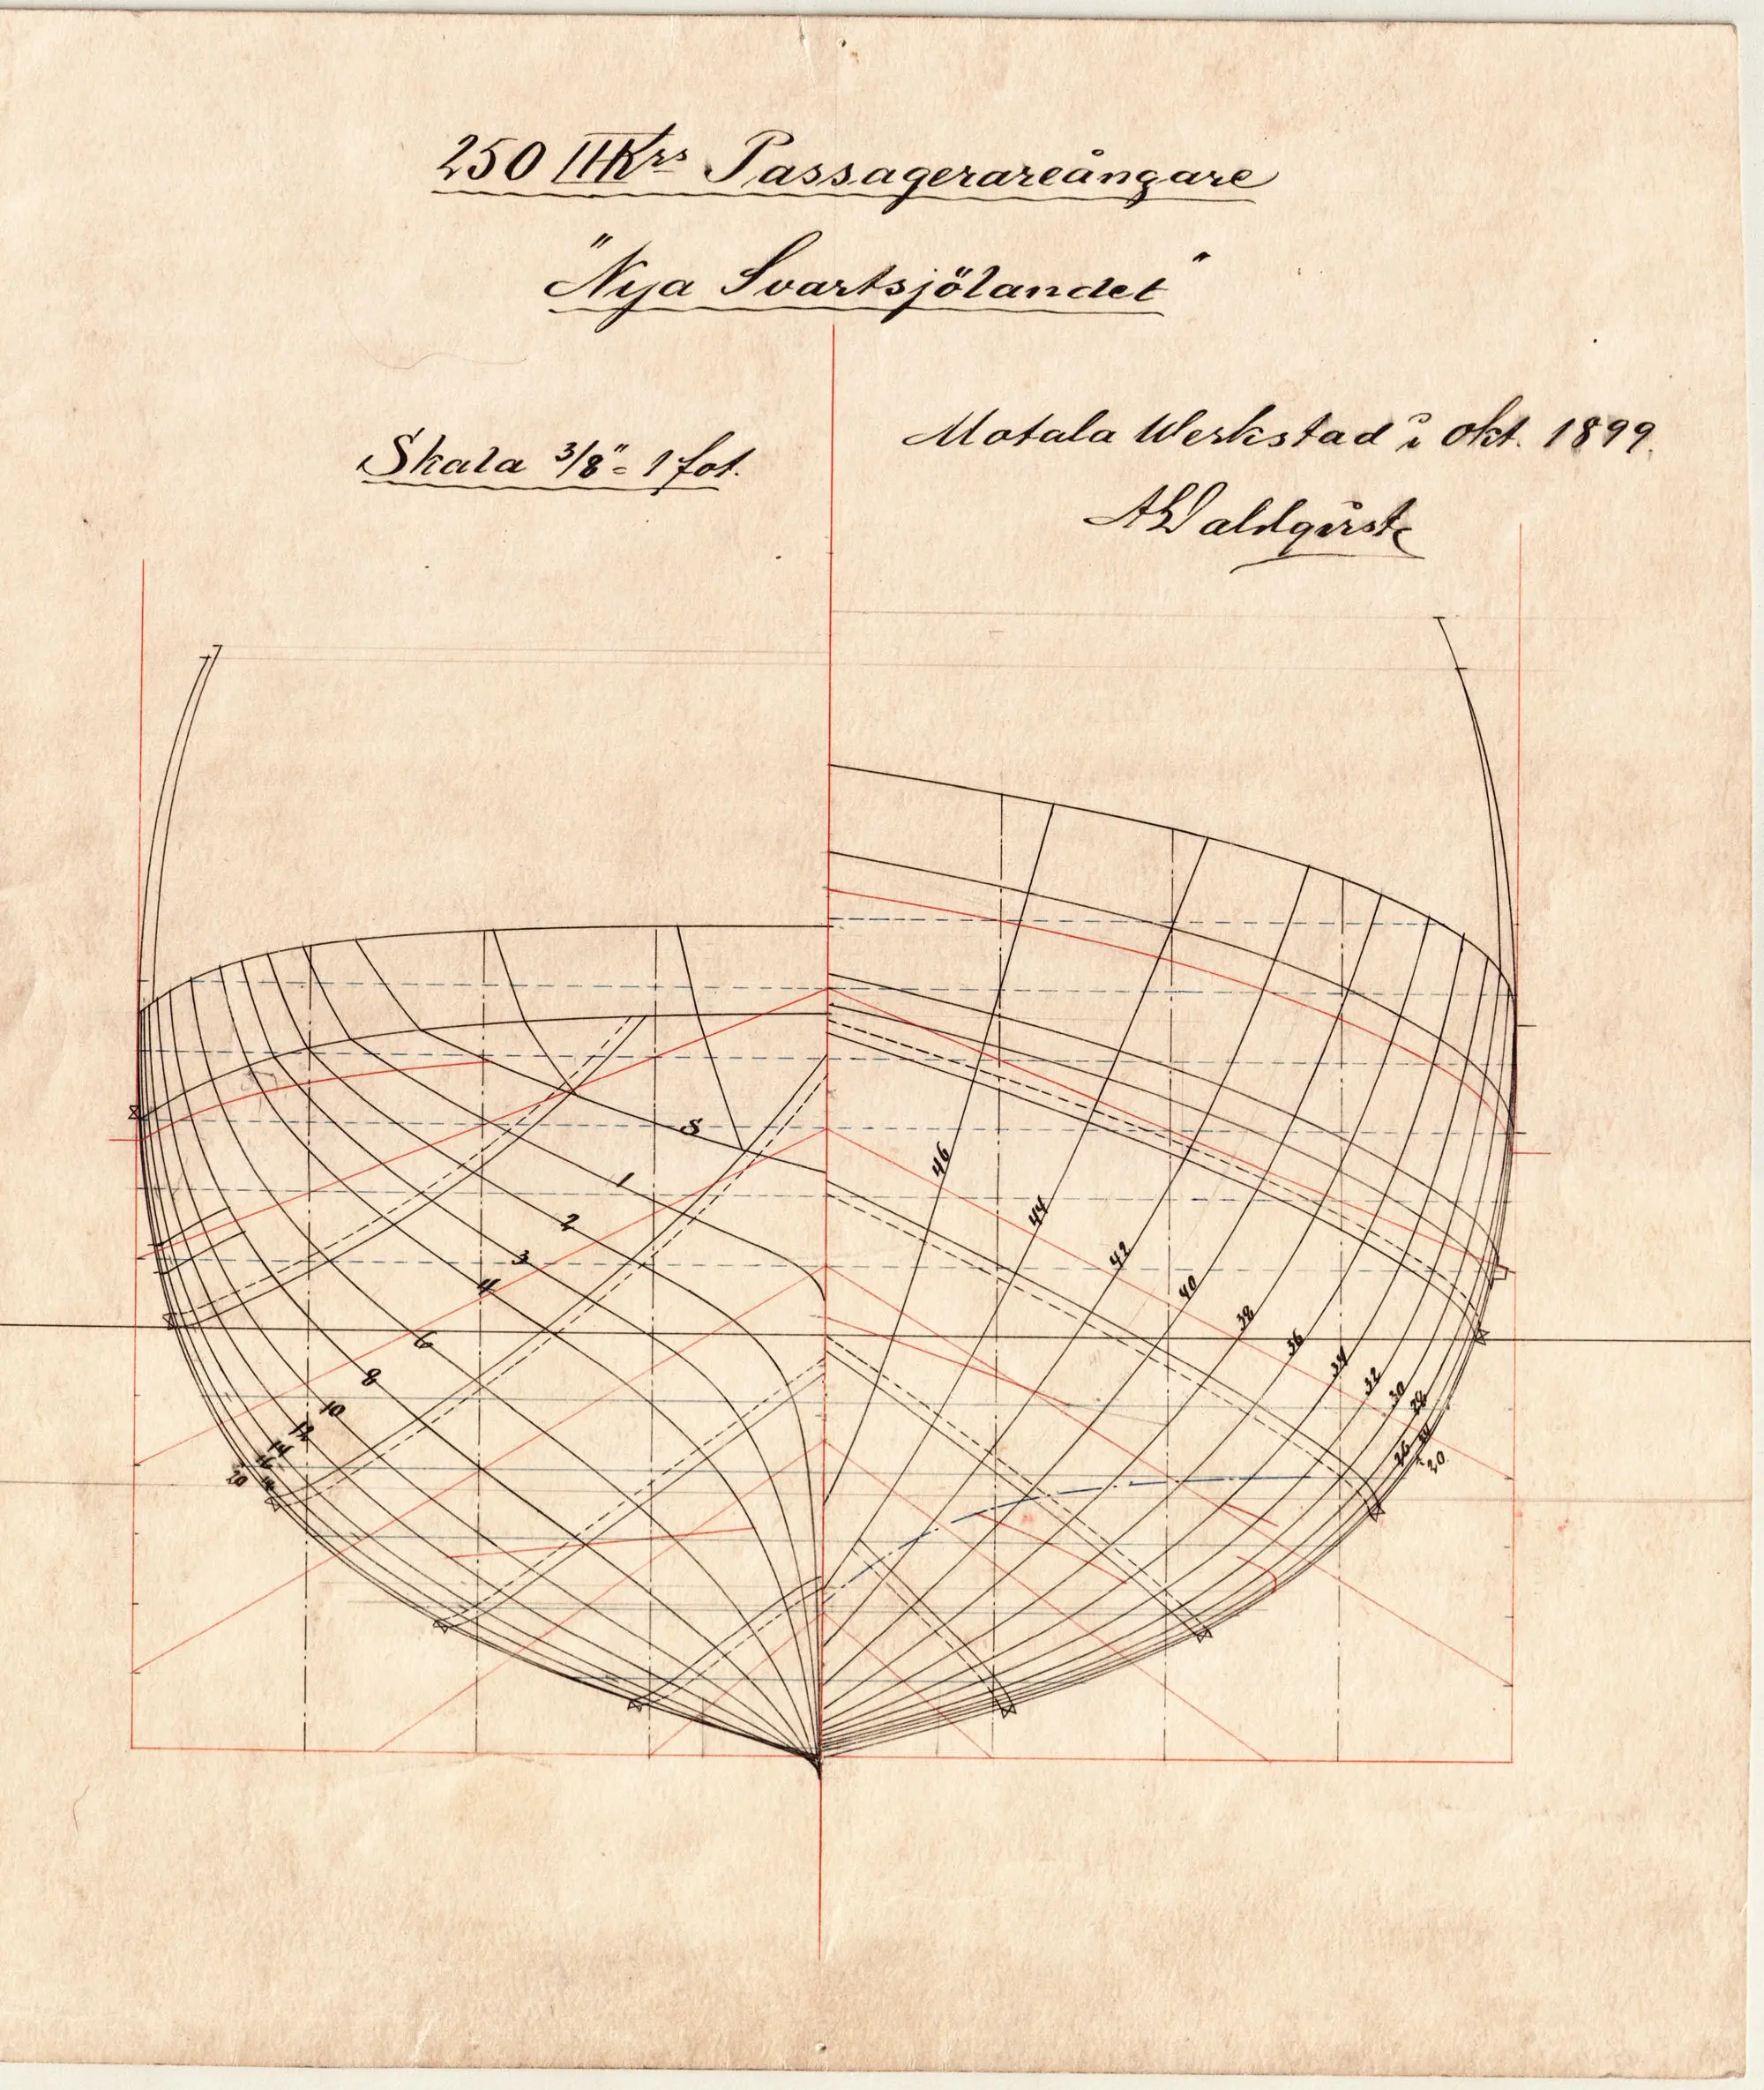 250 IHKrs Passagerareångare
"Nya Svartsjölandet"
Skala 3/8" = 1 fot.
Motala Werkstad i Okt. 1899.
S
1
2
3
4
6
8
10
12
14
16
18
20
46
44
42
40
38
36
34
32
30
28
26
20